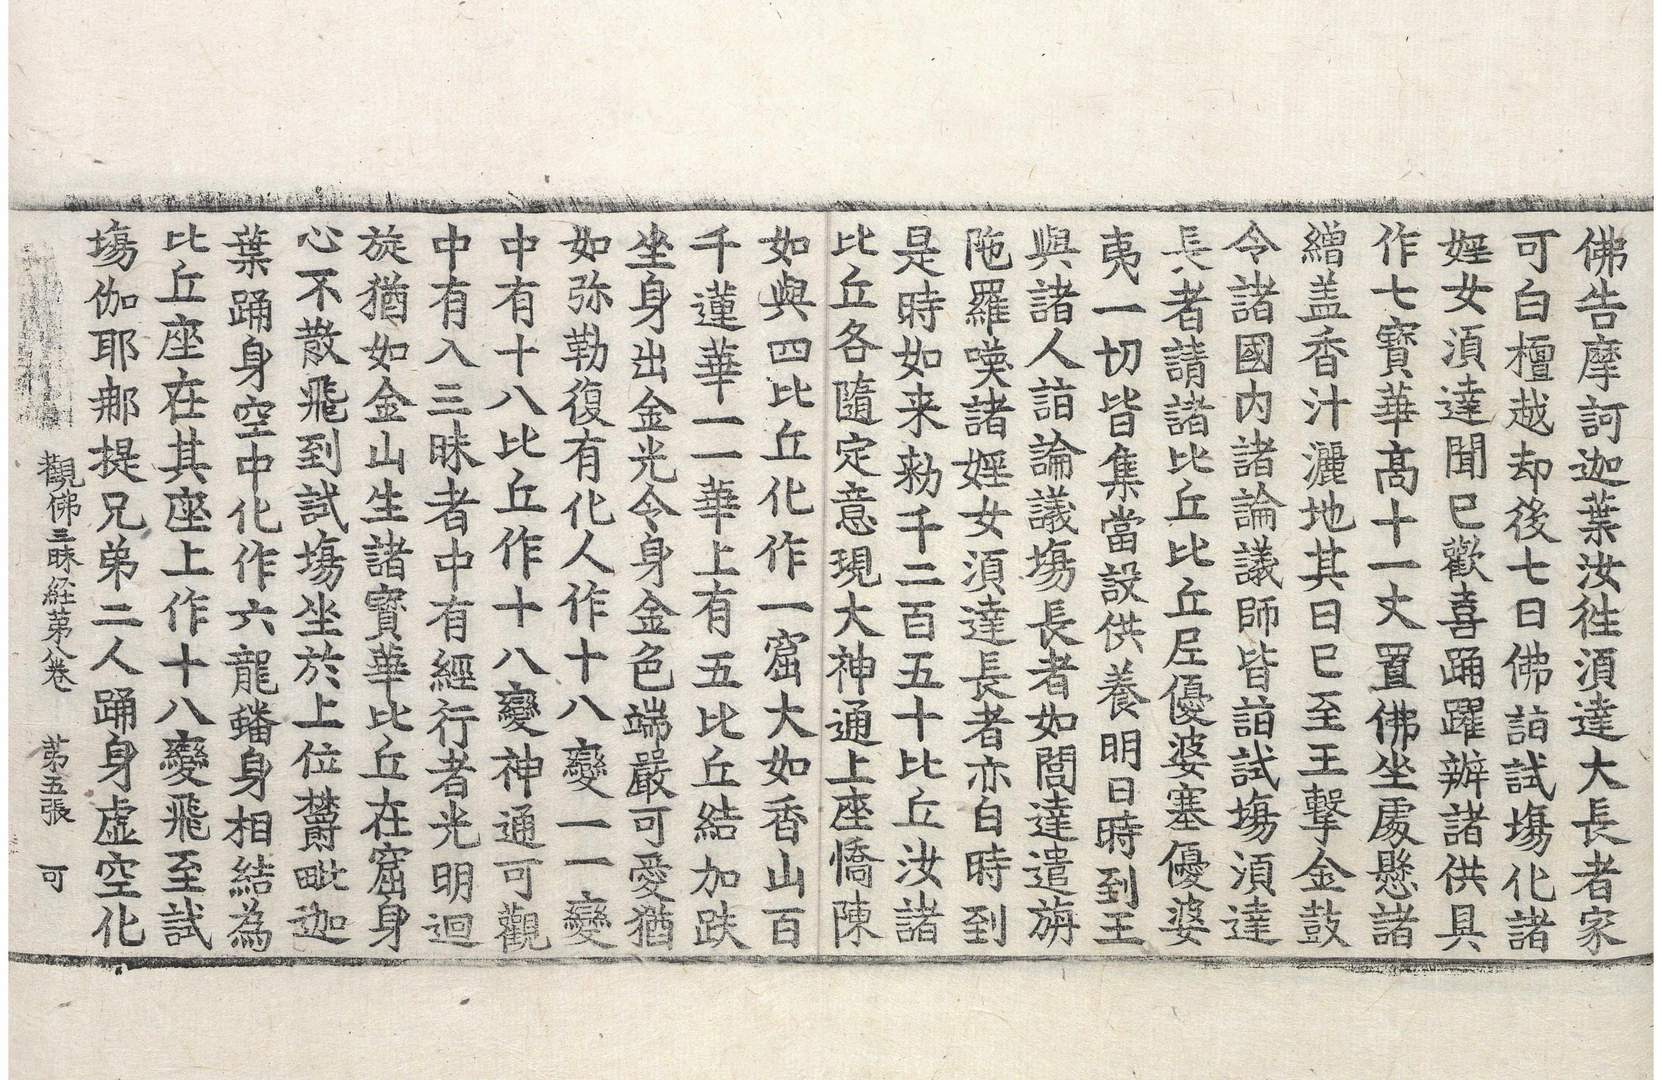 佛告摩訶迦葉汝徃湏達大長者家
可白檀越却後七日佛詣試塲化諸
婬女湏達聞已歡喜踊躍辦諸供具
作七寶華高十一丈置佛坐處懸諸
繒盖香汁灑地其日已至王擊金鼓
令諸國內諸論議師皆詣試塲湏達
長者請諸比丘比丘尼優婆塞優婆
夷一切皆集當設供養明日時到王
與諸人詣論議塲長者如閭達遣旃
陁羅喚諸婬女湏達長者亦白時到
是時如来勑千二百五十比丘汝諸
比丘各隨定意現大神通上座憍陳
如與四比丘化作一窟大如香山百
千蓮華一一華上有五比丘結加趺
坐身出金光令身金色端嚴可愛猶
如弥勒復有化人作十八變一一變
中有十八比丘作十八變神通可觀
中有入三昧者中有經行者光明迴
旋猶如金山生諸寶華比丘在窟身
心不散飛到試塲坐於上位欝毗迦
葉踊身空中化作六龍蟠身相結為
比丘座在其座上作十八變飛至試
塲伽耶那提兄弟二人踊身虛空化
觀佛三昧経苐八卷　苐五張　可